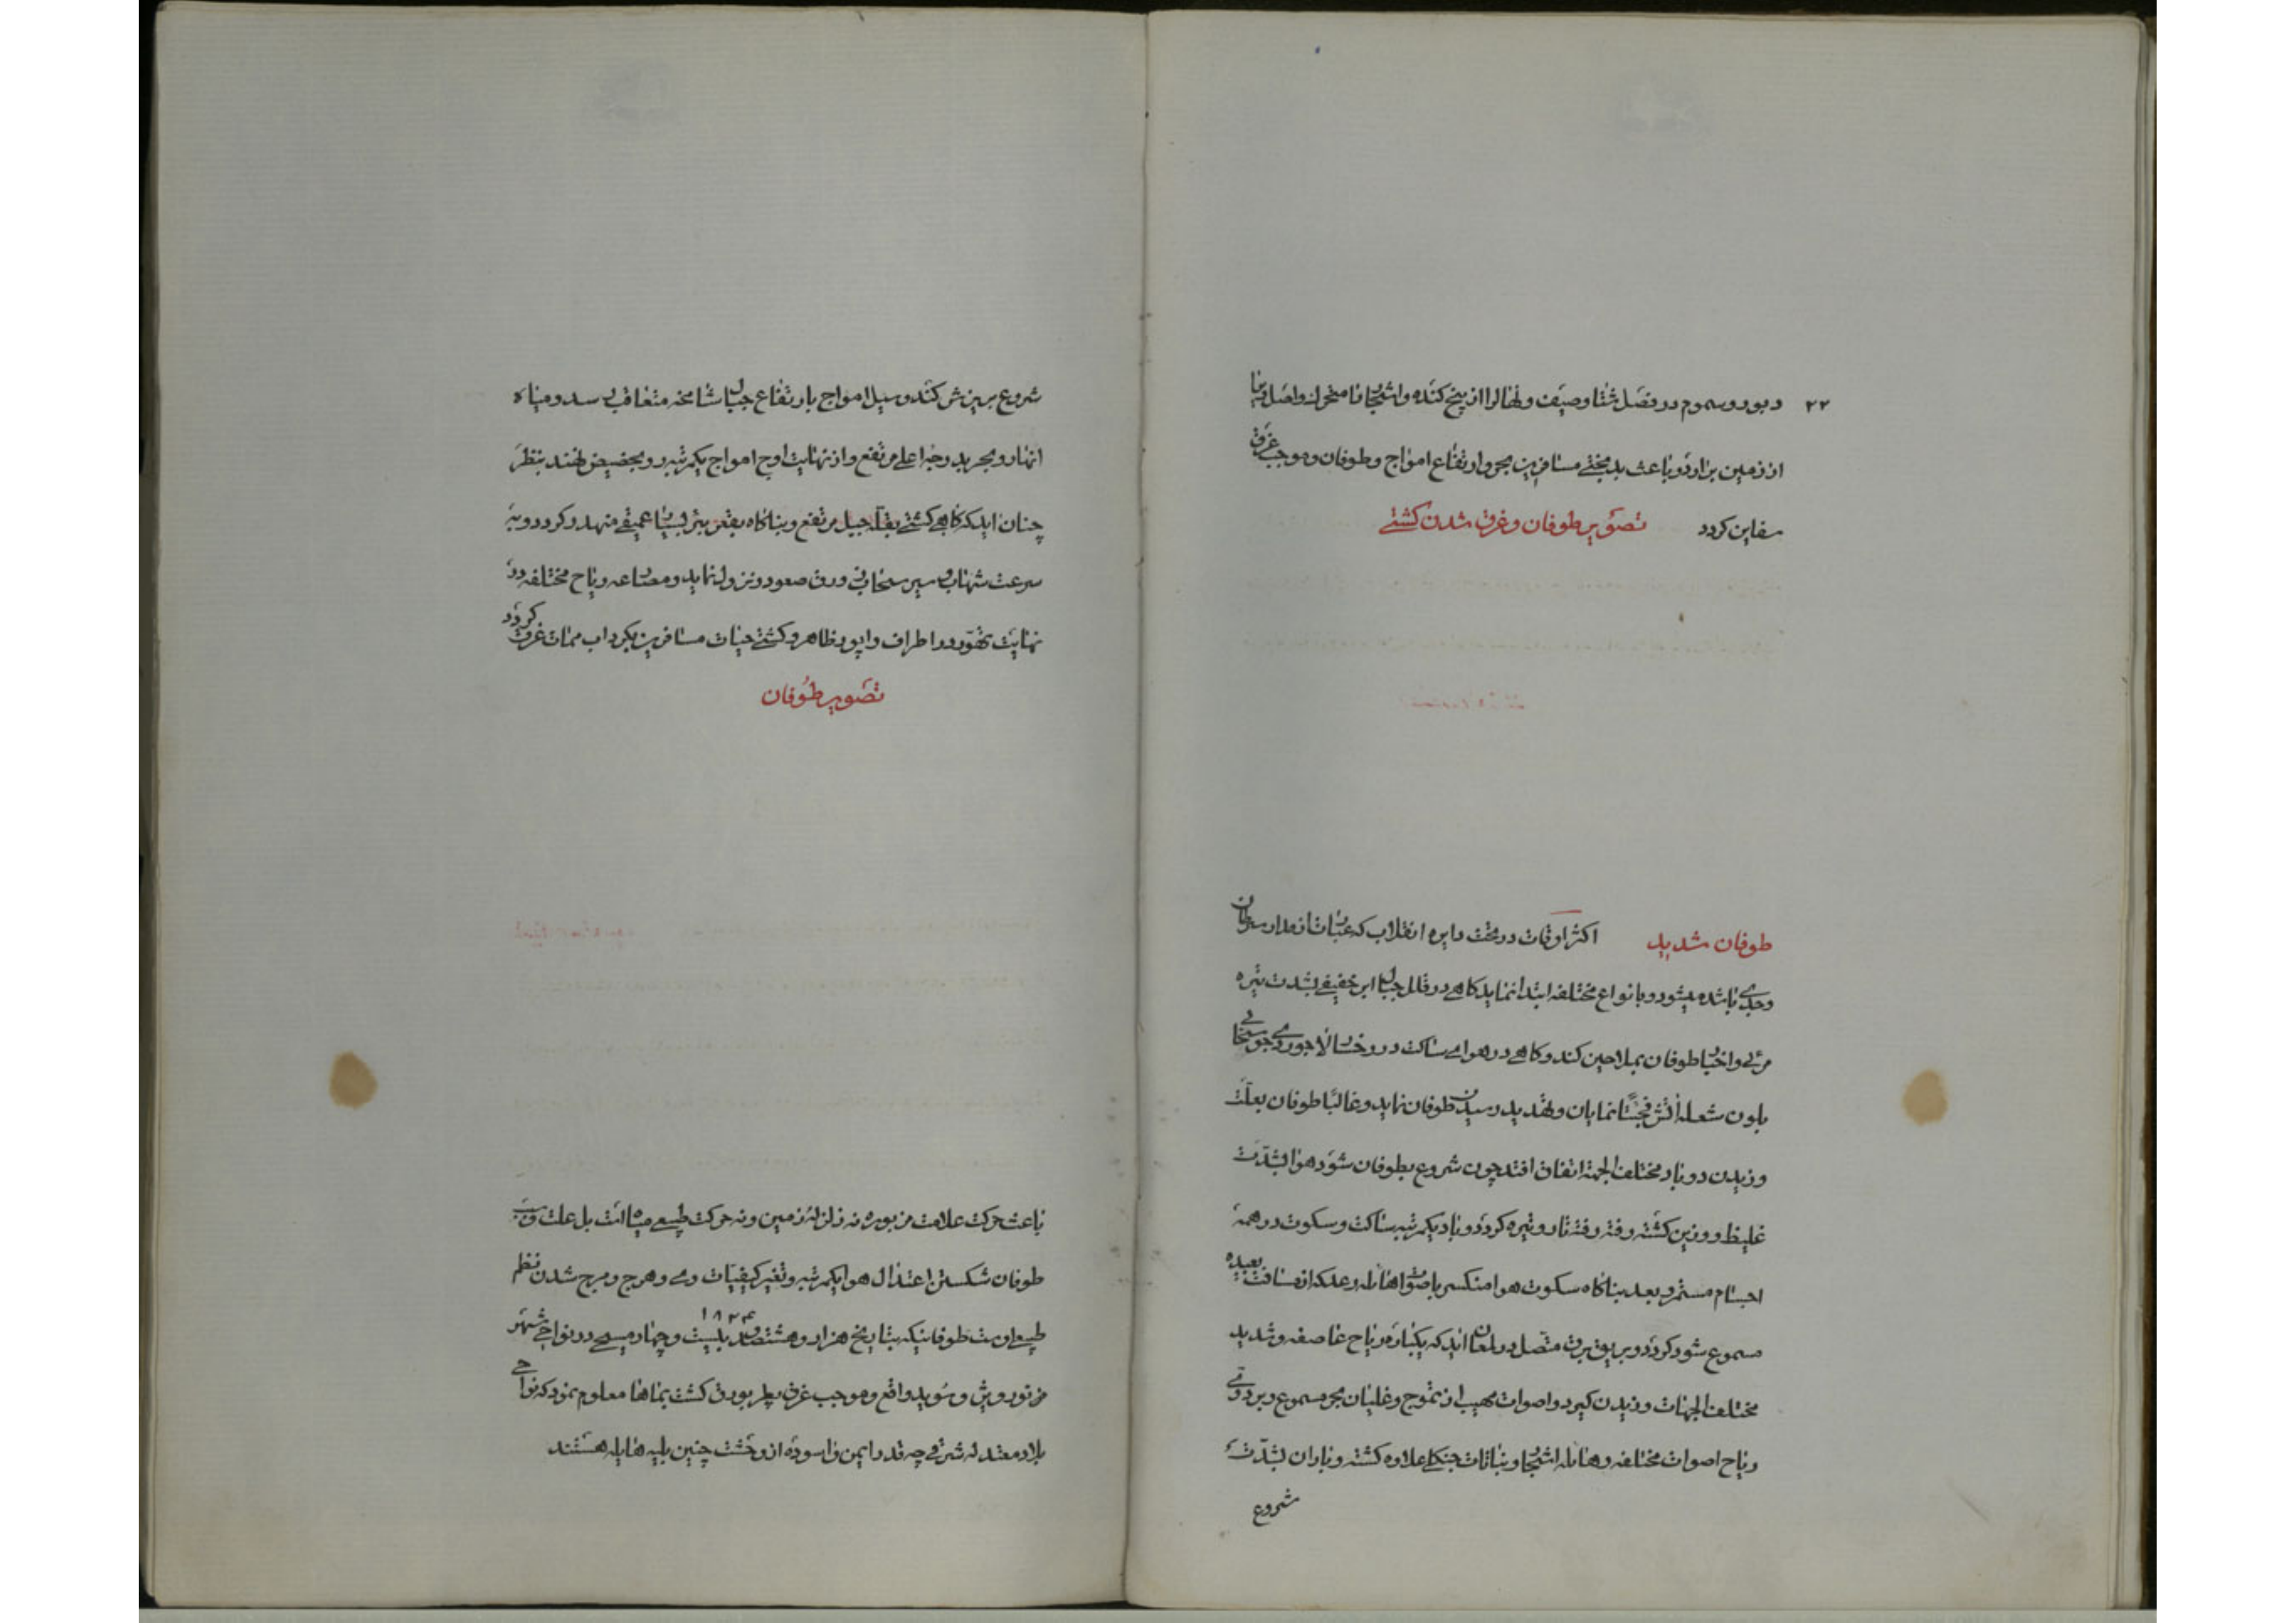 ۲۲
دبور و سموم در فصل شتا و صیف و نهالرا از بیخ کنده و اشجار نا متحرک و اصل بنا
از زمین بردارد و باعث بدبختی مسافرین بحر و ارتفاع امواج و طوفان و موجب غرق
سفاین کردد تصویر طوفان و غرق شدن کشتی
طوفان شدید اکثر اوقات در تحت دایره انقلاب که عبارت از مدار سرطان
و جدی باشد میشود و بانواع مختلفه ابتدا نماید کاهی در قلل جبال ابر خفیفی بشدت تیره
مرئی و اخبار طوفان بملاحین کند و کاهی در هوای ساکت در رخسار لاجوردی جو سحابی
بلون شعله آتش نمایان و تهدید رسیدن طوفان نماید و غالبًا طوفان بعلت
وزیدن دو باد مختلف الجهة اتفاق افتد چون شروع بطوفان شود هوا بشدّت
غلیظ و وزین کشته رفته رفته تار و تیره کردد و باد یکمرتبه ساکت و سکوت در همهٔ
اجسام مستمر و بعد بناکاه سکوت هوا منکسر باصوات هایله رعد که از مسافت بعیده
مسموع شود کردد و بریق برق متصل در لمعان اید که یکباره ریاح عاصفه و شدید
مختلف الجهات وزیدن کیرد و اصوات مهیب از تموج و غلیان بحر مسموع و بر دوی
ریاح اصوات مختلفه و هایله اشجار و نباتات جنکلی علاوه کشته و باران بشدّت
شروع
شروع بریزش کند و سیل امواج بارتفاع جبال شامخه متعاقب رسد و میاه
انهار و بحر بدرجهٔ اعلی مرتفع و از نهایت اوج امواج یکمرتبه رو بحضیض نهند بنظر
چنان اید که کاهی کشتی بقلهٔ جبل مرتفع و بناکاه بقعر بئر بسیار عمیقی منهدر کردد و به
سرعت شهاب و سیر سحاب و برق صعود و نزول نماید و مصارعه ریاح مختلفه در
نهایت تهوّر در اطراف واپور ظاهر و کشتی حیات مسافرین بکرداب ممات غرق کردد
تصویر طوفان
باعث حرکت علامت مزبوره نه زلزلهٔ زمین و نه حرکت طبیعی میاه است بل علت و سبب
طوفان شکستن اعتدال هوا یکمرتبه و تغیر کیفیات وی و هرج و مرج شدن نظم
طبیعی اوست طوفانیکه بتاریخ هزار و هشتصد و بیست و چهار ۱۸۲۴ مسیحی در نواحی شهر
و موجب غرق کشت بماها معلوم نمود که نواحی
بلاد معتدله شرقی چه قدر ایمن و اسوده از وحشت چنین بلیه هایله هستند